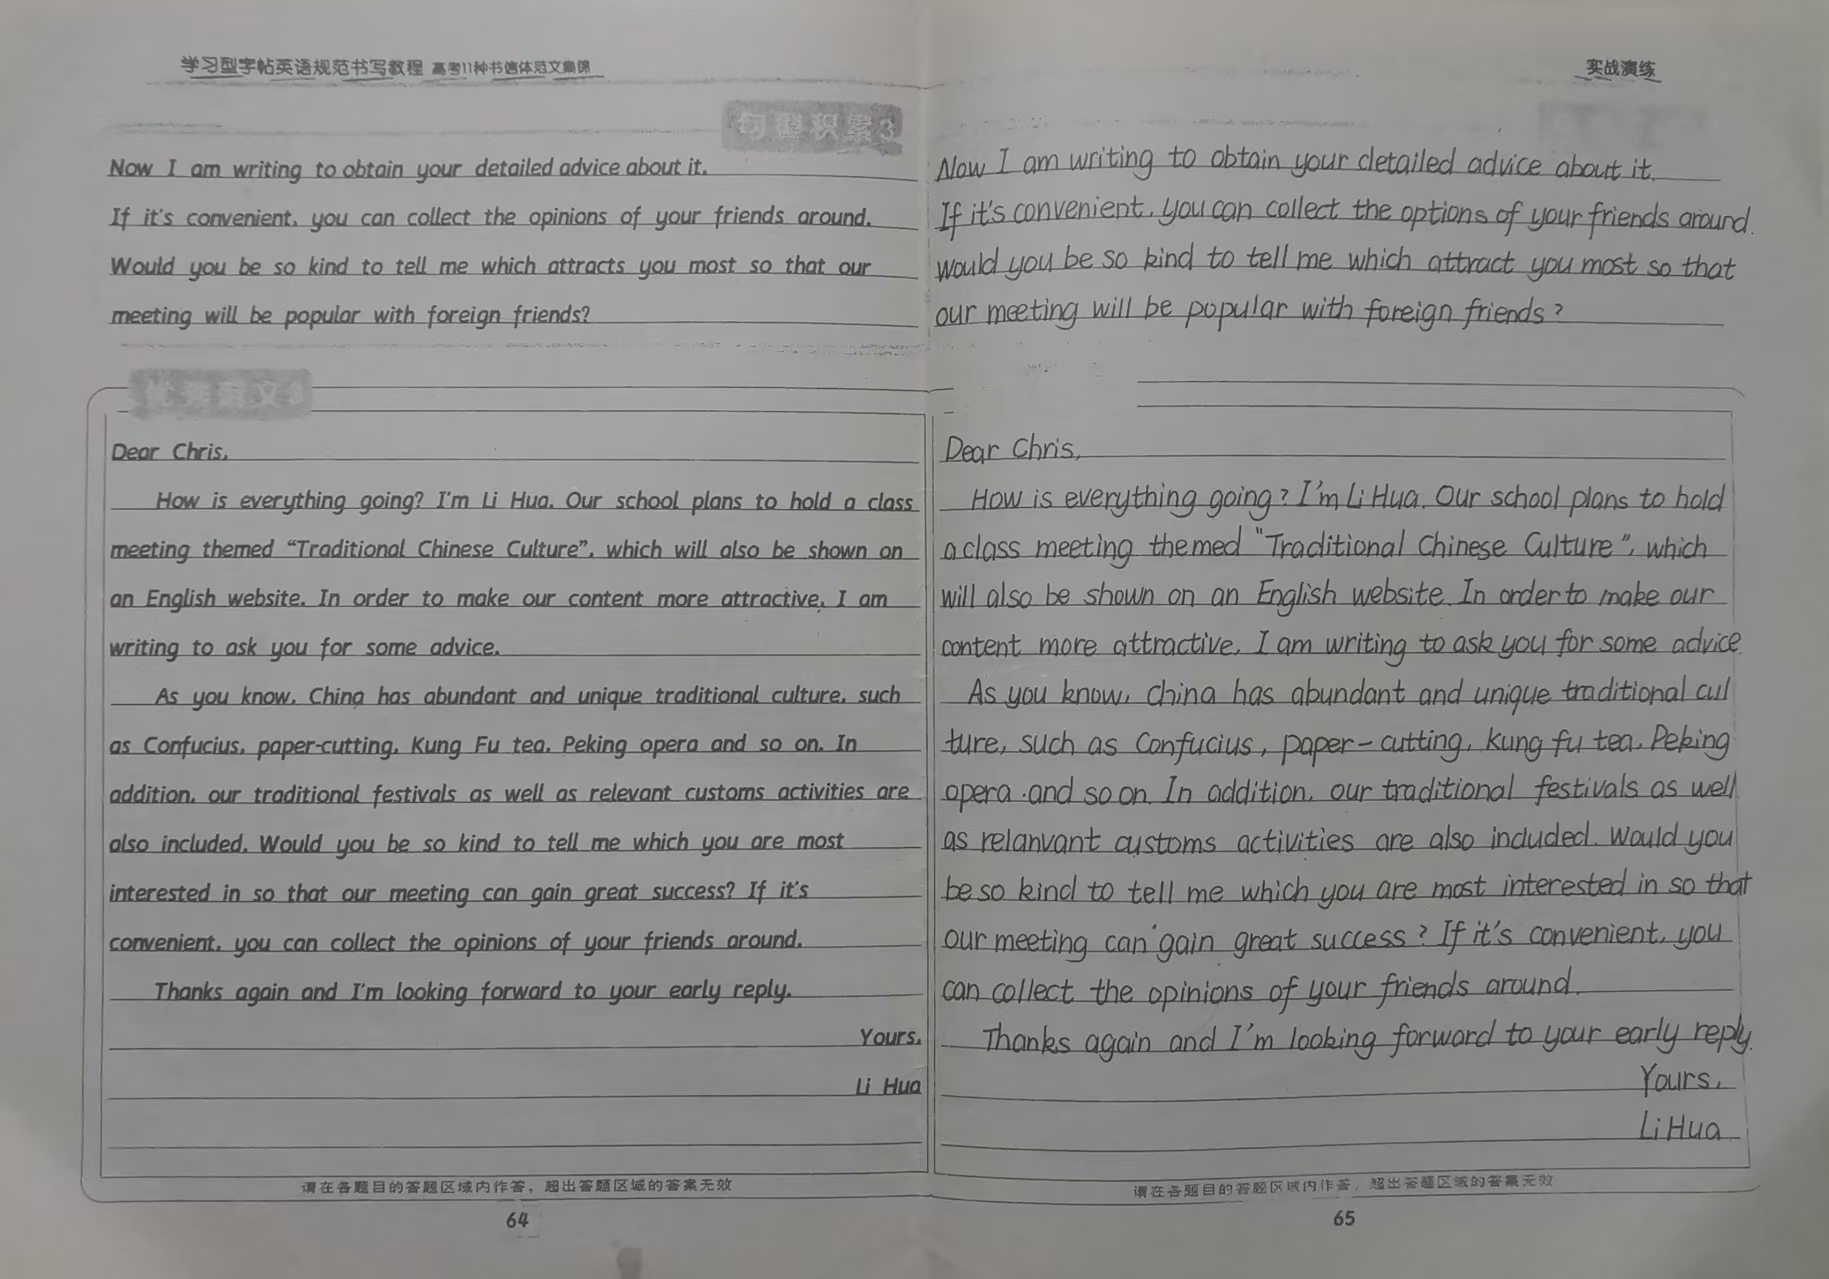 学习型字帖英语规范书写教程 高考11种书信体范文集锦
句型积累3
Now I am writing to obtain your detailed advice about it.
If it's convenient, you can collect the opinions of your friends around.
Would you be so kind to tell me which attracts you most so that our
meeting will be popular with foreign friends?
Dear Chris,
How is everything going? I'm Li Hua. Our school plans to hold a class
meeting themed “Traditional Chinese Culture”, which will also be shown on
an English website. In order to make our content more attractive, I am
writing to ask you for some advice.
As you know, China has abundant and unique traditional culture, such
as Confucius, paper-cutting, Kung Fu tea, Peking opera and so on. In
addition, our traditional festivals as well as relevant customs activities are
also included. Would you be so kind to tell me which you are most
interested in so that our meeting can gain great success? If it's
convenient, you can collect the opinions of your friends around.
Thanks again and I'm looking forward to your early reply.
Yours,
Li Hua
请在各题目的答题区域内作答，超出答题区域的答案无效
64
实战演练
Now I am writing to obtain your detailed advice about it.
If it's convenient, you can collect the options of your friends around.
Would you be so kind to tell me which attract you most so that
our meeting will be popular with foreign friends?
Dear Chris,
How is everything going? I'm Li Hua. Our school plans to hold
a class meeting themed "Traditional Chinese Culture", which
will also be shown on an English website. In order to make our
content more attractive, I am writing to ask you for some advice.
As you know, China has abundant and unique traditional cul
ture, such as Confucius, paper-cutting, Kung fu tea, Peking
opera and so on. In addition, our traditional festivals as well
as relanvant customs activities are also included. Would you
be so kind to tell me which you are most interested in so that
our meeting can gain great success? If it's convenient, you
can collect the opinions of your friends around.
Thanks again and I'm looking forward to your early reply.
Yours,
Li Hua
请在各题目的答题区域内作答，超出答题区域的答案无效
65